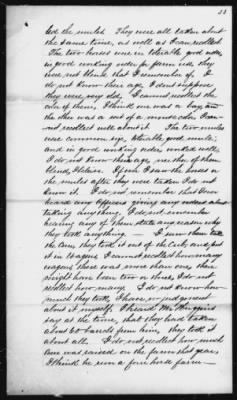 33
led the mules. They were all taken about
the same time, as well as I can recollect
The two horses were in tolerable good order
in good working order for farm use they
were not blind that I remember of. I
do not know their age I don't suppose
they were very old, I cannot recollect the
color of them, I think one was a bay and
the other was a sort of a mouse color I can
not recollect well about it. The two mules
were common size, tolerable good mules,
and in good working order, worked well,
I do not know their age, neither of them
blind, I believe. If ever I saw the horses or
the mules after they were taken I do not
know it. I do not remember that I ever
heard any Officers giving any orders about
taking anything, I do not remember
hearing any of them state any reason why
they took anything. I saw them take
the corn, they took it out of the crib and put
it in wagons I cannot recollect how many
wagons there was more than one, there
might have been two or three, I do not
recollect how many. I do not know how
much they took, I have no judgment
about it myself. I heard Mr Huggins
say at the time, that they had taken
about 60 barrels from him, they took it
about all. I do not recollect how much
there was raised on the farm that year,
I think he run a four horse farm